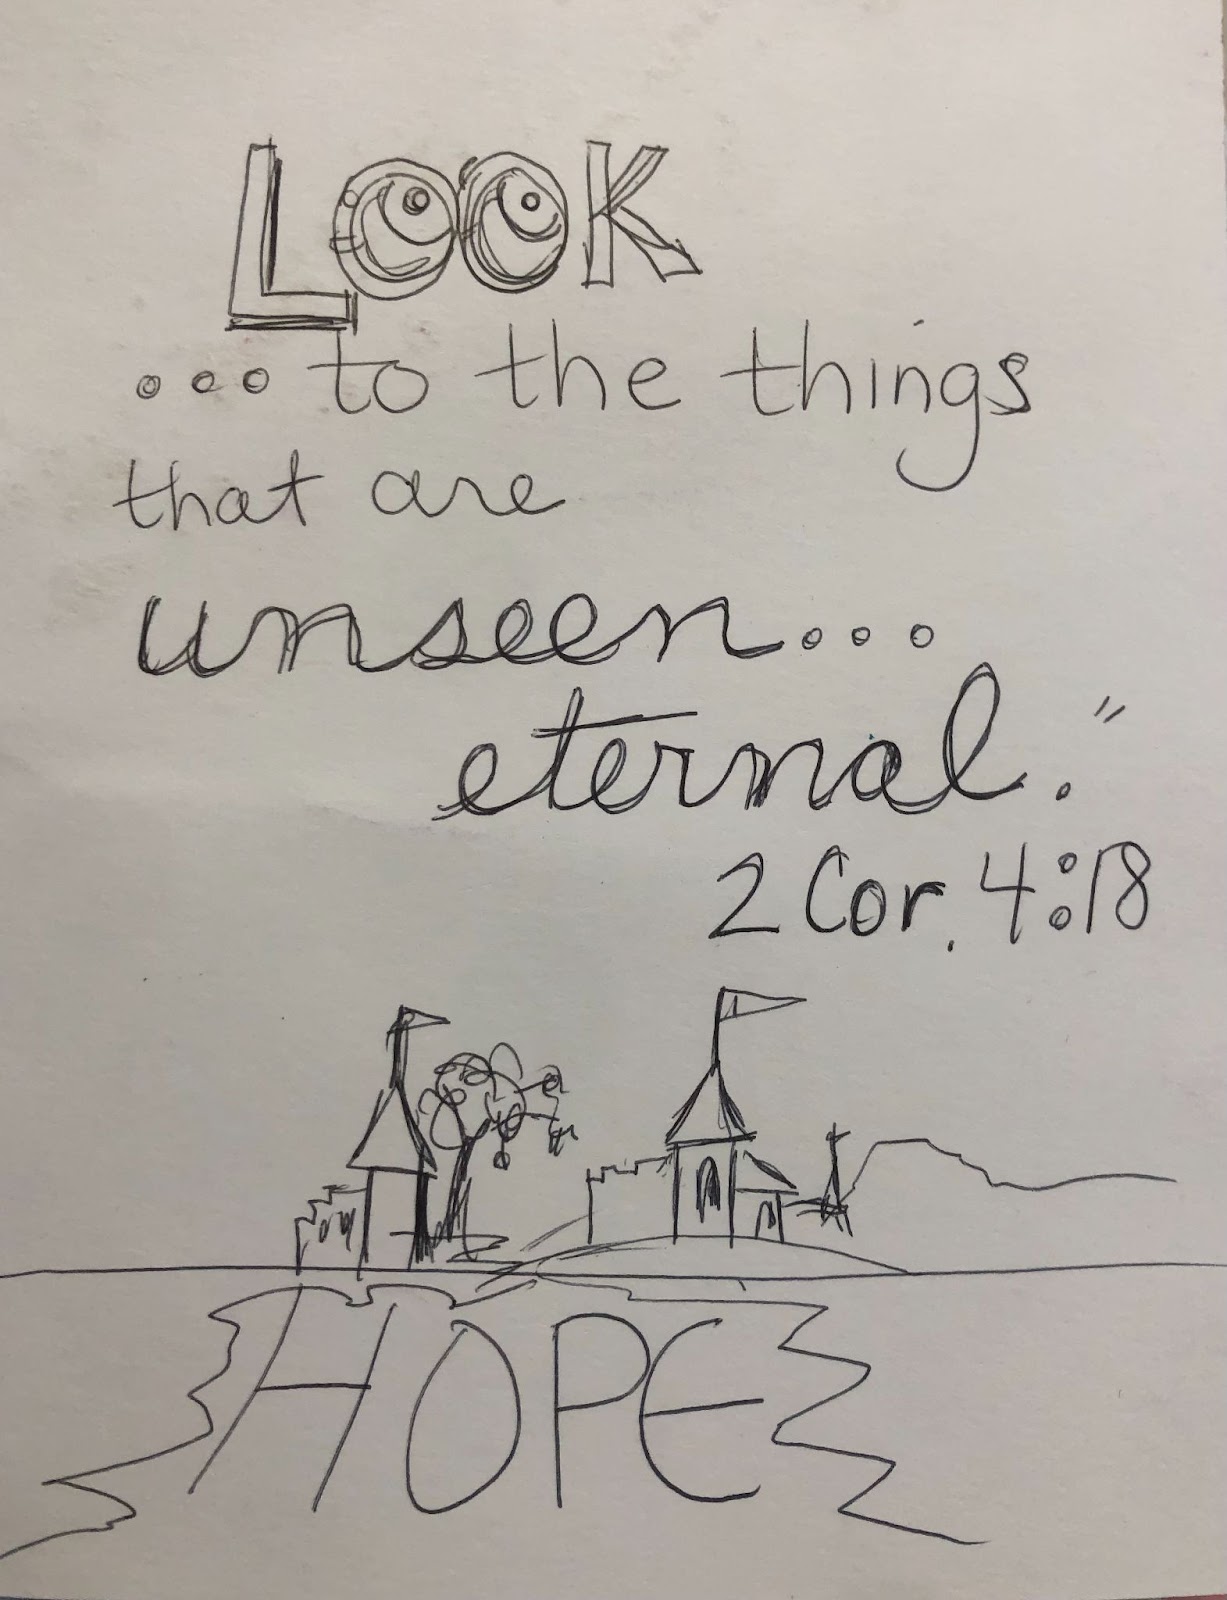 LOOK
...to the things
that are
unseen...
eternal."
2 Cor. 4:18
HOPE